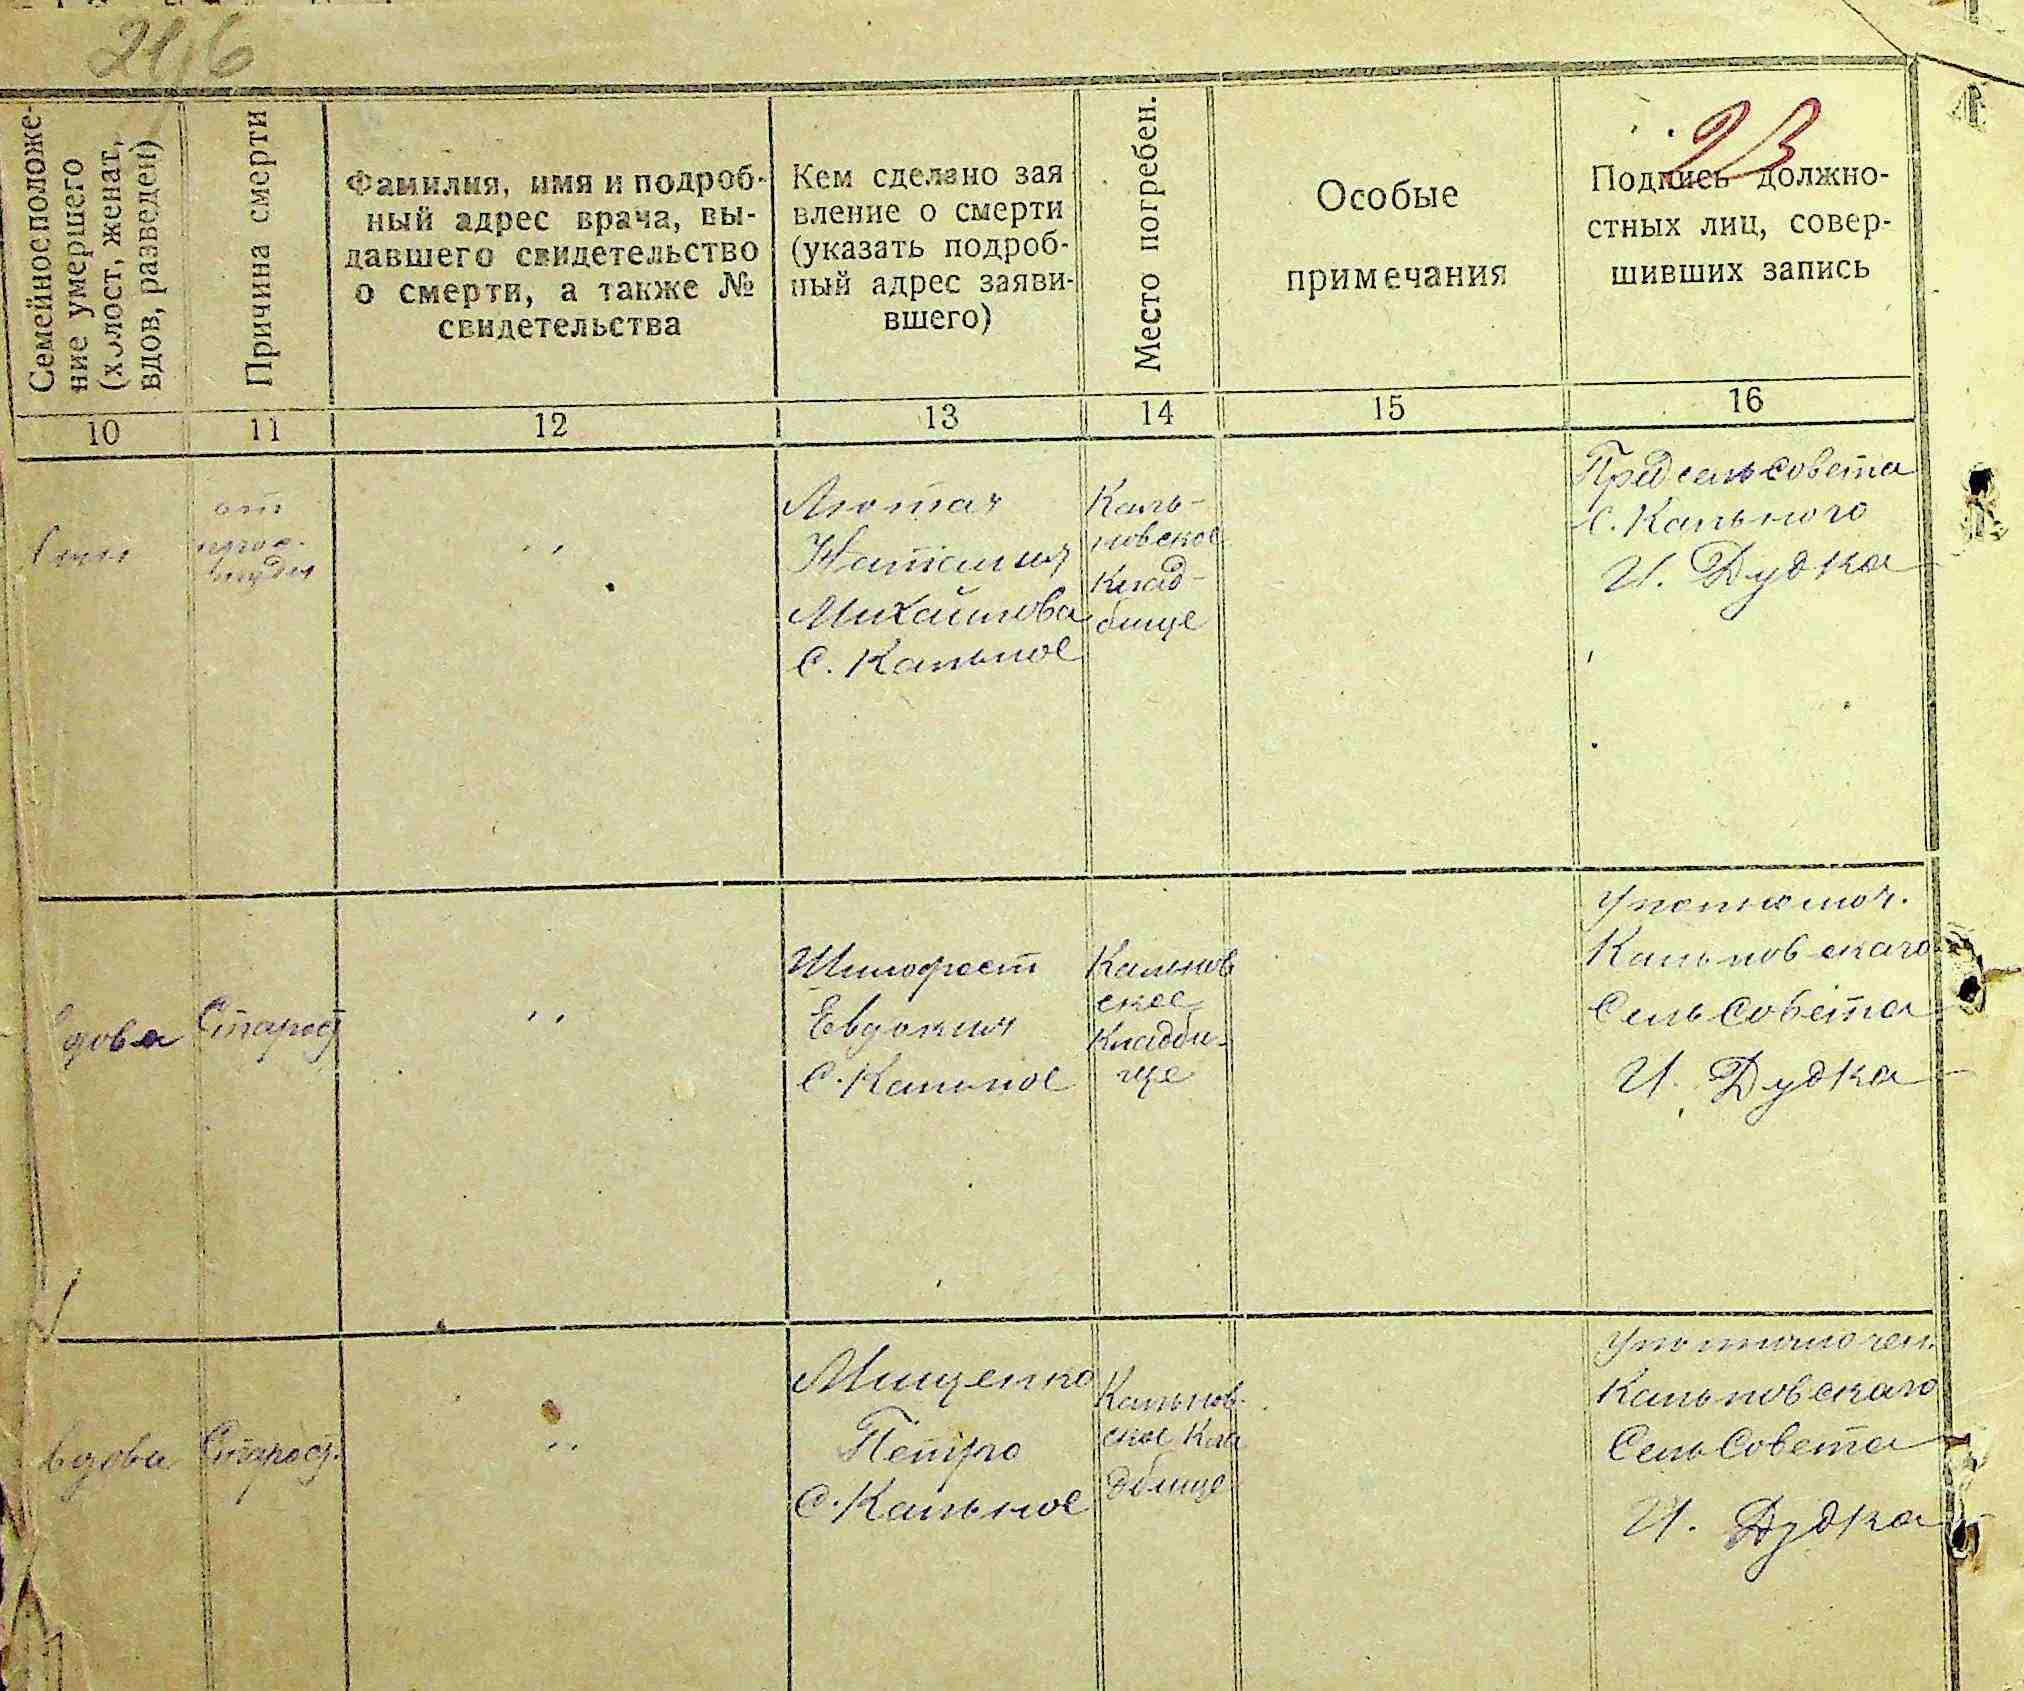 23
Семейное положе-
ние умершего
(холост, женат,
вдов, разведен)
Причина смерти
Фамилия, имя и подроб-
ный адрес врача, вы-
давшего свидетельство
о смерти, а также №
свидетельства
Кем сделано зая
вление о смерти
(указать подроб-
ный адрес заяви-
вшего)
Место погребен.
Особые
примечания
Подпись должно-
стных лиц, совер-
шивших запись
10
11
12
13
14
15
16
от
〃
Лютая
Наталия
Михайлова
С. Кальное
Каль-
новское
Клад-
бище
Предсельсовета
С. Кального
И. Дудка
вдова
Старост
〃
Шилофост
Евдокия
С. Кальное
Кальнов
ское
Кладби-
ще
Уполномоч.
Кальновскаго
СельСовета
И. Дудка
вдова
Старост.
〃
Мищенко
Петро
С. Кальное
Кальнов-
ское Кла
дбище
Уполномочен.
Кальновскаго
СельСовета
И. Дудка